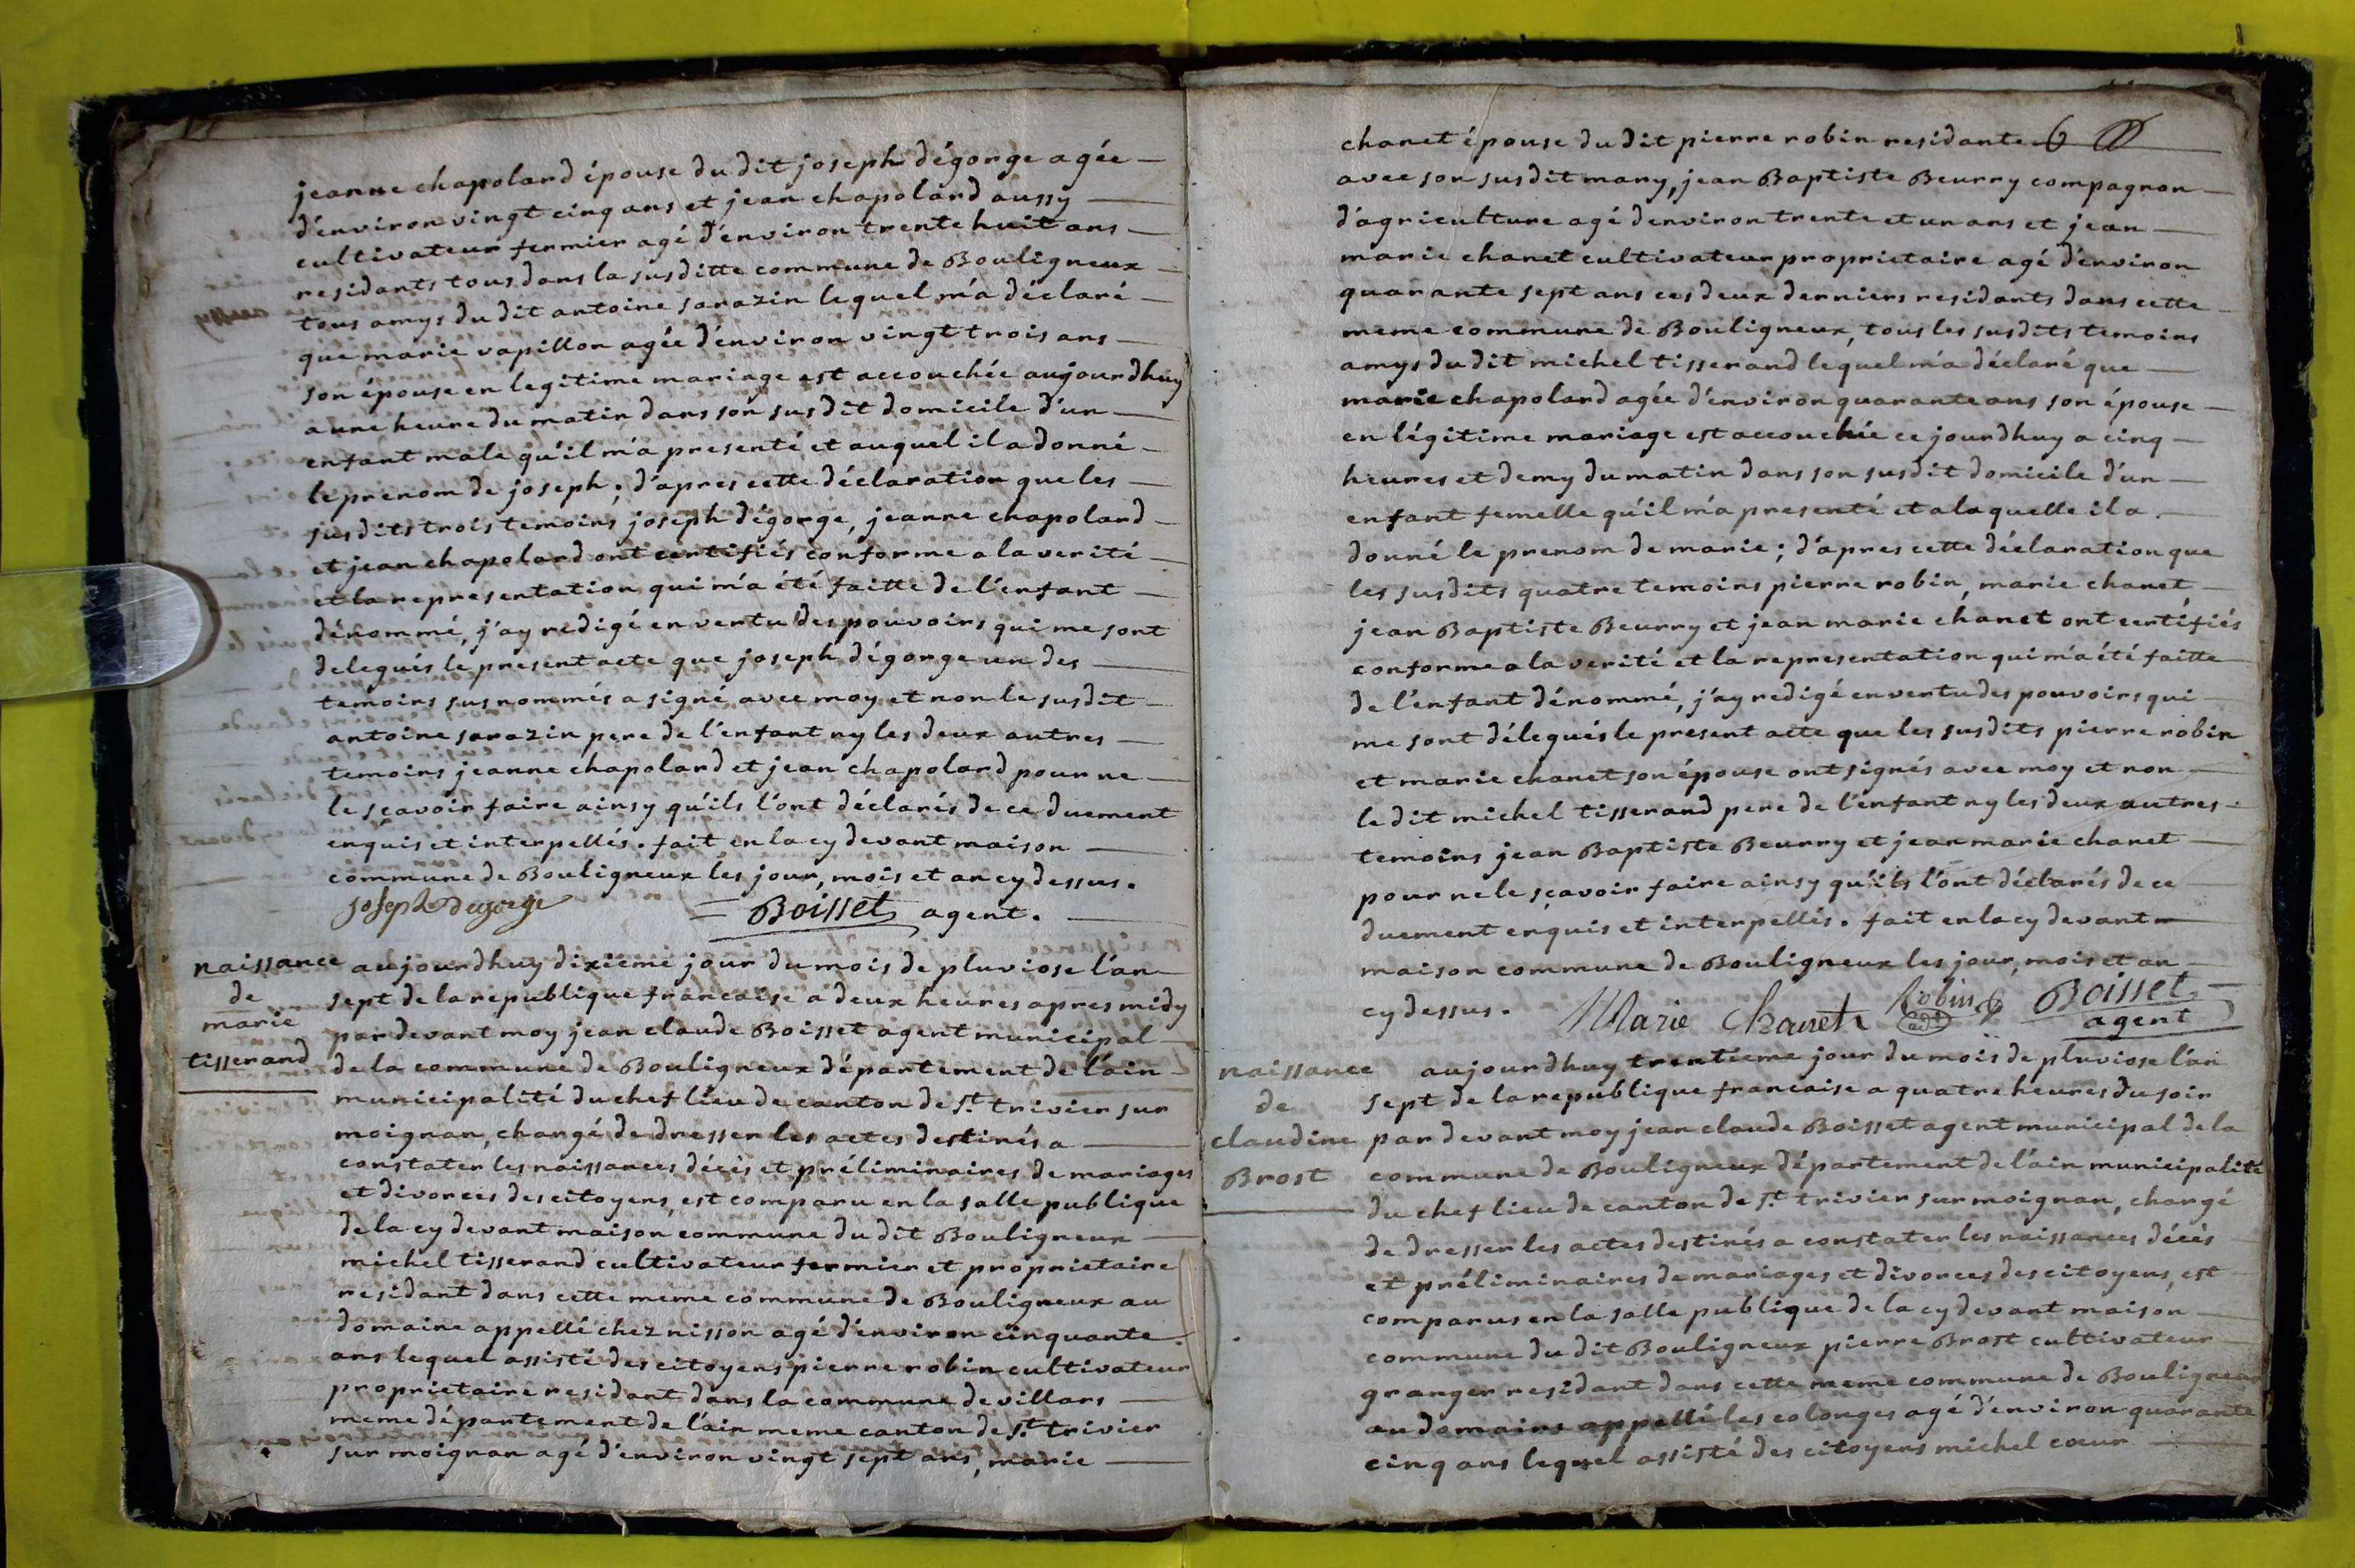 jeanne chapolard épouse du dit joseph dégorge agée
d'environ vingt cinq ans et jean chapolard aussy
cultivateur fermier agé d'environ trente huit ans
residants tous dans la susditte commune de Bouligneux
tous amys du dit antoine sarazin lequel m'a déclaré
que marie vapillon agée d'environ vingt trois ans
son épouse en legitime mariage est accouchée aujourdhuy
a une heure du matin dans son susdit domicile d'un
enfant male qu'il m'a presenté et auquel il a donné
le prenom de joseph ; d'apres cette déclaration que les
susdits trois temoins joseph dégorge, jeanne chapolard
et jean chapolard ont certifiés conforme a la verité
et la representation qui m'a été faitte de l'enfant
dénommé, j'ay redigé en vertu des pouvoirs qui me sont
delegués le present acte que joseph dégorge un des
temoins susnommés a signé avec moy et non le susdit
antoine sarazin pere de l'enfant ny les deux autres
temoins jeanne chapolard et jean chapolard pour ne
le sçavoir faire ainsy qu'ils l'ont déclarés de ce duement
enquis et interpellés. fait en la cy devant maison
commune de Bouligneux les jour, mois et an cy dessus.
joseph degorge Boisset agent.
naissance
de
marie
tisserand
aujourdhuy dixieme jour du mois de pluviose l'an
sept de la republique francaise a deux heures apres midy
par devant moy jean claude Boisset agent municipal
de la commune de Bouligneux département de l'ain
municipalité du chef lieu de canton de St. trivier sur
moignan, chargé de dresser les actes destinés a
constater les naissances, décès et préliminaires de mariages
et divorces des citoyens, est comparu en la salle publique
de la cy devant maison commune du dit Bouligneux
michel tisserand cultivateur fermier et proprietaire
residant dans cette meme commune de Bouligneux au
domaine appellé chez nisson agé d'environ cinquante
ans lequel assisté des citoyens pierre robin cultivateur
proprietaire residant dans la commune de villars
meme département de l'ain meme canton de St. trivier
sur moignan agé d'environ vingt sept ans, marie
chanet épouse du dit pierre robin residante 6
avec son susdit mary, jean Baptiste Beurry compagnon
d'agriculture agé d'environ trente et un ans et jean
marie chanet cultivateur proprietaire agé d'environ
quarante sept ans ces deux derniers residants dans cette
meme commune de Bouligneux, tous les susdits temoins
amys du dit michel tisserand lequel m'a déclaré que
marie chapolard agée d'environ quarante ans son épouse
en légitime mariage est accouchée ce jourdhuy a cinq
heures et demy du matin dans son susdit domicile d'un
enfant femelle qu'il m'a presenté et a laquelle il a
donné le prenom de marie ; d'apres cette déclaration que
les susdits quatre temoins pierre robin, marie chanet,
jean Baptiste Beurry et jean marie chanet ont certifiés
conforme a la verité et la representation qui m'a été faitte
de l'enfant dénommé, j'ay redigé en vertu des pouvoirs qui
me sont délegués le present acte que les susdits pierre robin
et marie chanet son épouse ont signés avec moy et non
le dit michel tisserand pere de l'enfant ny les deux autres
temoins jean Baptiste Beurry et jean marie chanet
pour ne le sçavoir faire ainsy qu'ils l'ont déclarés de ce
duement enquis et interpellés. fait en la cy devant
maison commune de Bouligneux les jour, mois et an
cy dessus. Marie Chanet Robin adt Boisset
agent
naissance
de
claudine
Brost
aujourdhuy trentieme jour du mois de pluviose l'an
sept de la republique francaise a quatre heures du soir
par devant moy jean claude Boisset agent municipal de la
commune de Bouligneux département de l'ain municipalité
du chef lieu de canton de St. trivier sur moignan, chargé
de dresser les actes destinés a constater les naissances, décès
et préliminaires de mariages et divorces des citoyens, est
comparus en la salle publique de la cy devant maison
commune du dit Bouligneux pierre Brost cultivateur
granger residant dans cette meme commune de Bouligneux
au domaine appellé les colonges agé d'environ quarante
cinq ans lequel assisté des citoyens michel cœur